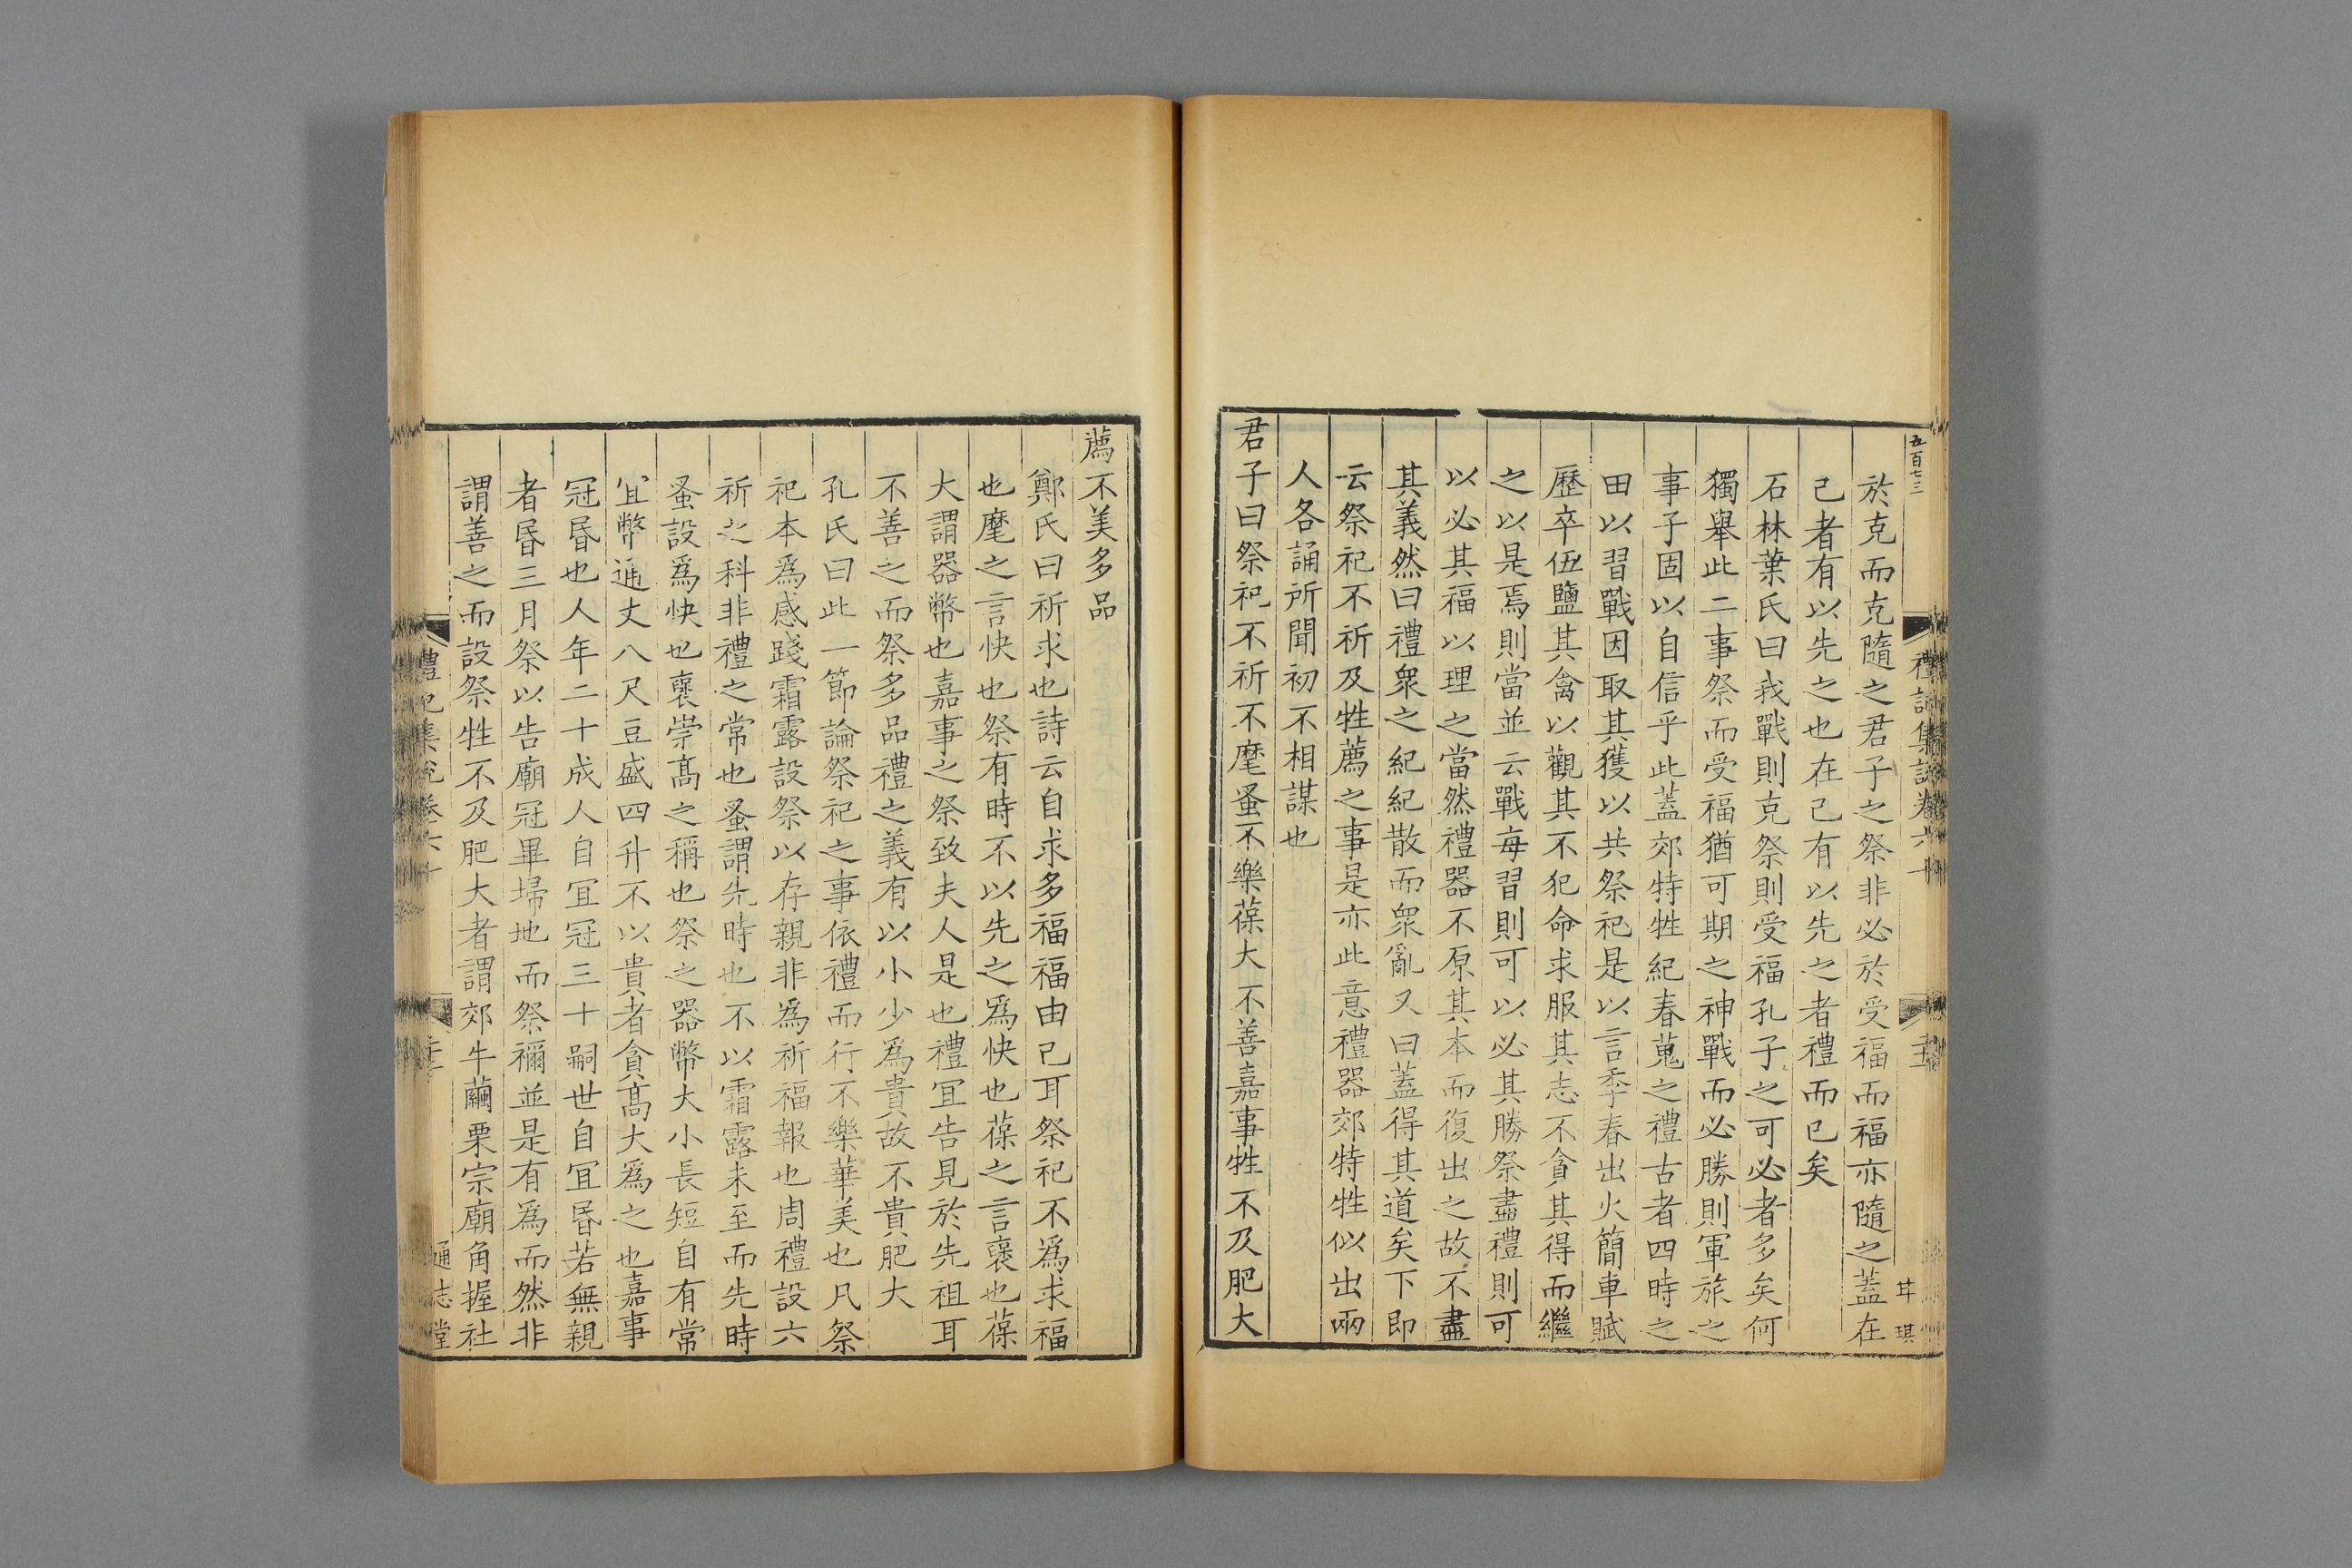 五百七三
禮記集說卷六十
於克而克隨之君子之祭非必於受福而福亦隨之蓋在
己者有以先之也在己有以先之者禮而已矣
石林葉氏曰我戰則克祭則受福孔子之可必者多矣何
獨舉此二事祭而受福猶可期之神戰而必勝則軍旅之
事子固以自信乎此蓋郊特牲紀春蒐之禮古者四時之
田以習戰因取其獲以共祭祀是以言季春出火簡車賦
歷卒伍鹽其禽以觀其不犯命求服其志不貪其得而繼
之以是焉則當並云戰每習則可以必其勝祭盡禮則可
以必其福以理之當然禮器不原其本而復出之故不盡
其義然曰禮衆之紀紀散而衆亂又曰蓋得其道矣下即
云祭祀不祈及牲薦之事是亦此意禮器郊特牲似出兩
人各誦所聞初不相謀也
君子曰祭祀不祈不麾蚤不樂葆大不善嘉事牲不及肥大
薦不美多品
鄭氏曰祈求也詩云自求多福福由己耳祭祀不爲求福
也麾之言快也祭有時不以先之爲快也葆之言襃也葆
大謂器幣也嘉事之祭致夫人是也禮宜告見於先祖耳
不善之而祭多品禮之義有以小少爲貴故不貴肥大
孔氏曰此一節論祭祀之事依禮而行不樂華美也凡祭
祀本爲感踐霜露設祭以存親非爲祈福報也周禮設六
祈之科非禮之常也蚤謂先時也不以霜露未至而先時
蚤設爲快也襃崇髙之稱也祭之器幣大小長短自有常
宜幣通丈八尺豆盛四升不以貴者貪髙大爲之也嘉事
冠昬也人年二十成人自宜冠三十嗣世自宜昬若無親
者昬三月祭以告廟冠畢埽地而祭禰並是有爲而然非
謂善之而設祭牲不及肥大者謂郊牛繭栗宗廟角握社
禮記集說卷六十
通志堂